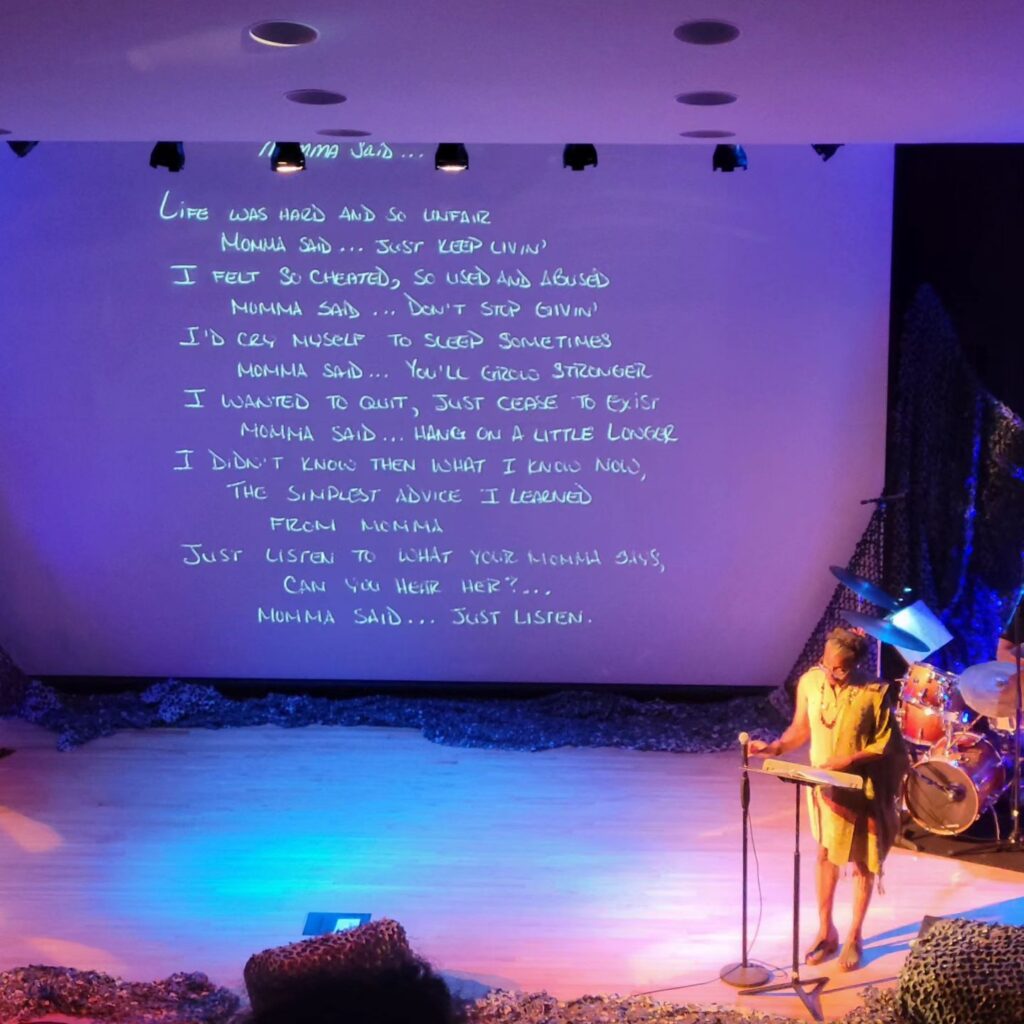 MOMMA SAID...
LIFE WAS HARD AND SO UNFAIR
MOMMA SAID... JUST KEEP LIVIN'
I FELT SO CHEATED, SO USED AND ABUSED
MOMMA SAID... DON'T STOP GIVIN'
I'D CRY MYSELF TO SLEEP SOMETIMES
MOMMA SAID... YOU'LL GROW STRONGER
I WANTED TO QUIT, JUST CEASE TO EXIST
MOMMA SAID... HANG ON A LITTLE LONGER
I DIDN'T KNOW THEN WHAT I KNOW NOW,
THE SIMPLEST ADVICE I LEARNED
FROM MOMMA
JUST LISTEN TO WHAT YOUR MOMMA SAYS,
CAN YOU HEAR HER?...
MOMMA SAID... JUST LISTEN.